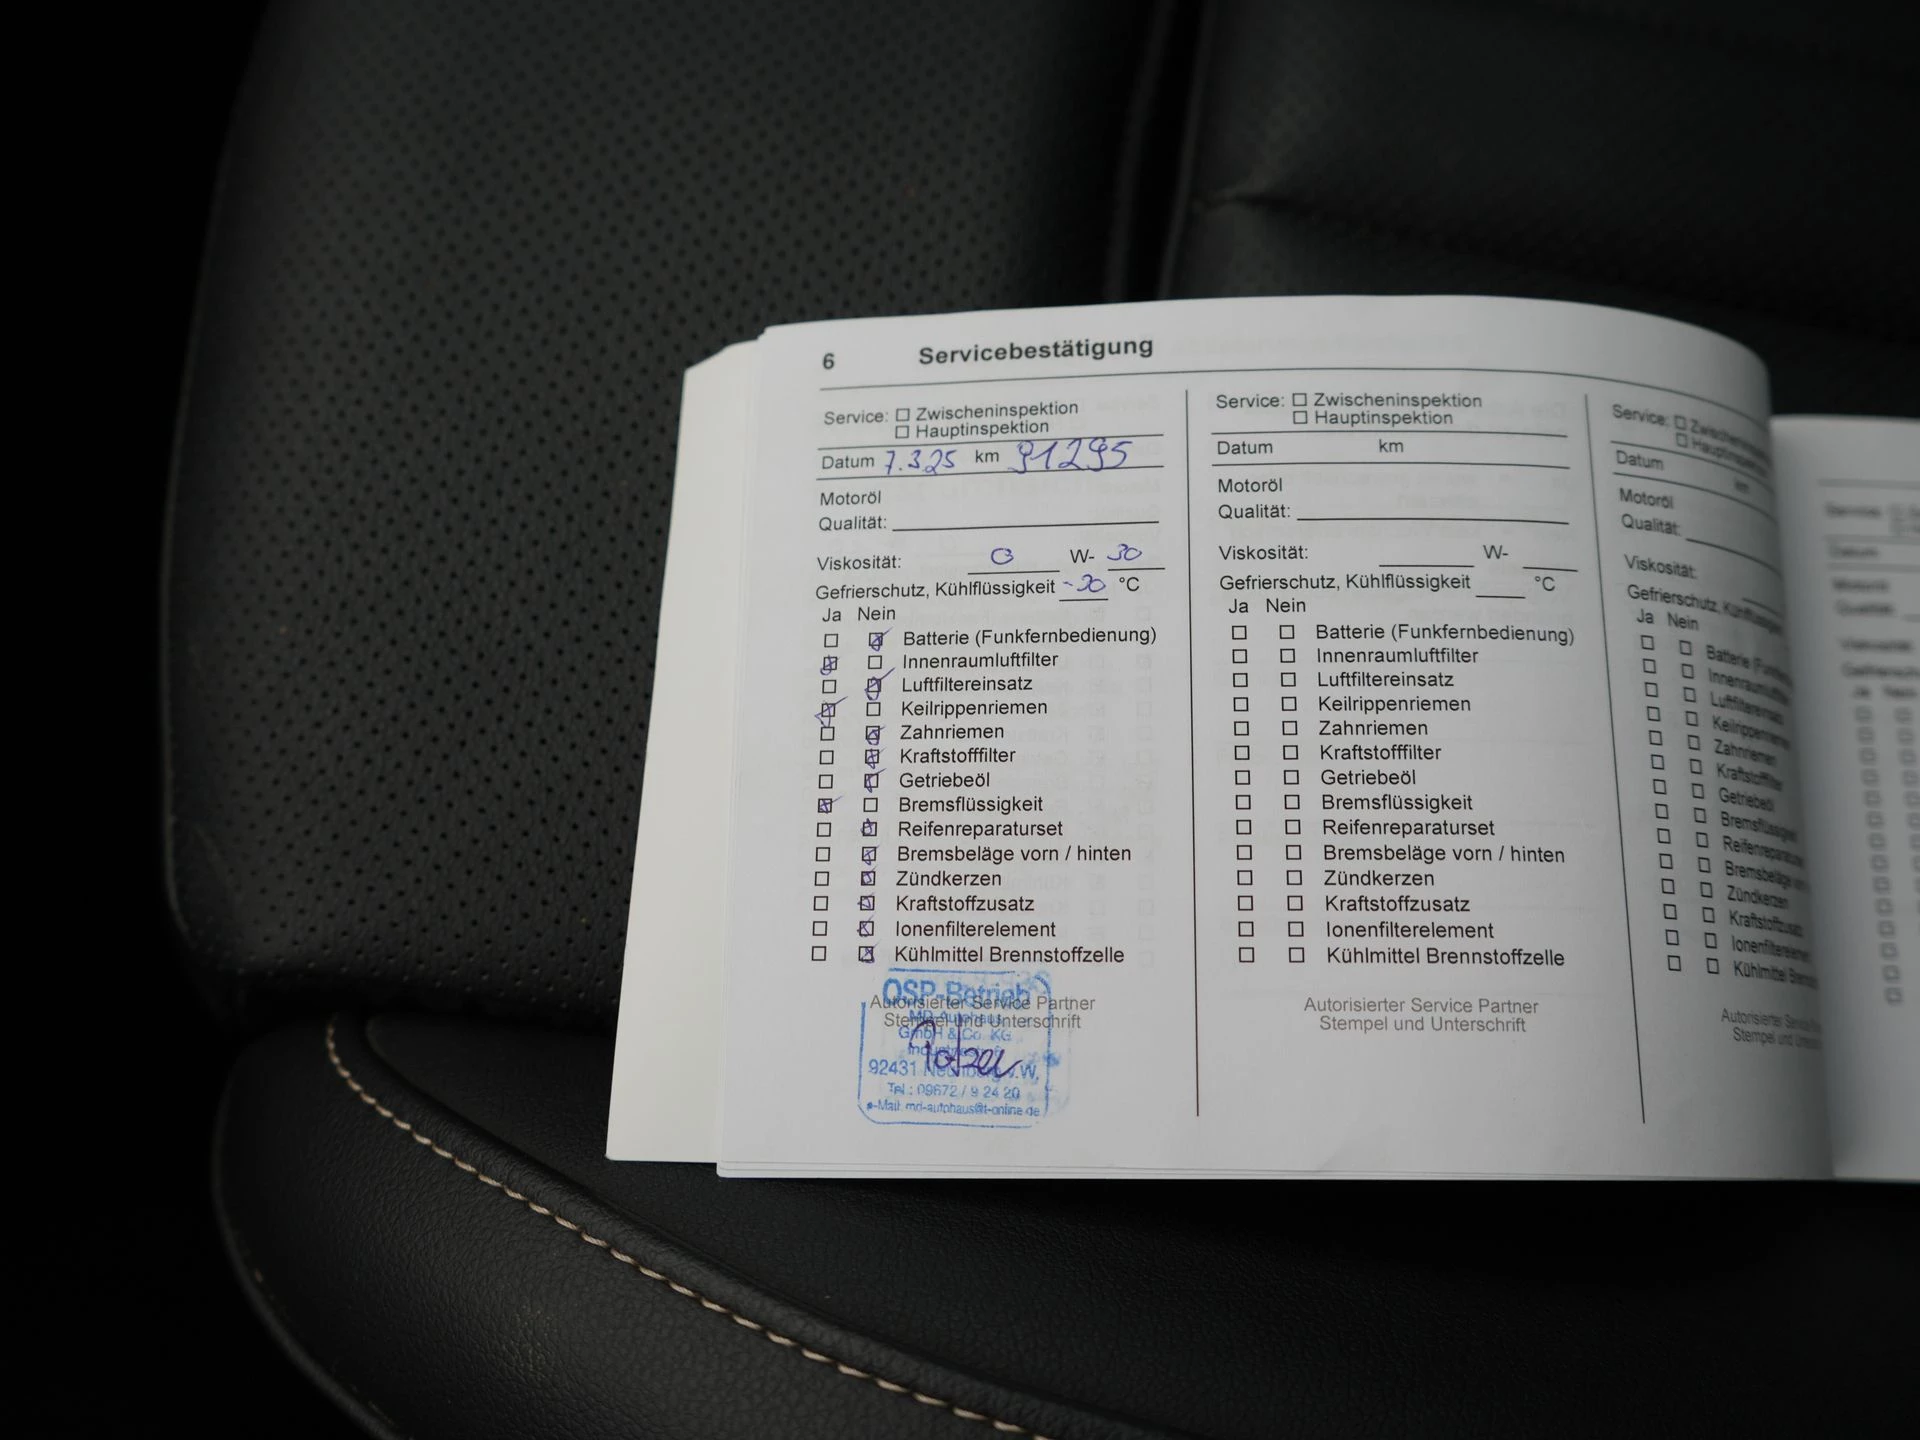 6 Servicebestätigung
Service: ☐ Zwischeninspektion
☐ Hauptinspektion
Datum 7.3.25 km 91295
Motoröl
Qualität:
Viskosität: 0 W- 30
Gefrierschutz, Kühlflüssigkeit -30 °C
Ja Nein
☐ ☒ Batterie (Funkfernbedienung)
☒ ☐ Innenraumluftfilter
☐ ☒ Luftfiltereinsatz
☒ ☐ Keilrippenriemen
☐ ☒ Zahnriemen
☐ ☒ Kraftstofffilter
☐ ☒ Getriebeöl
☒ ☐ Bremsflüssigkeit
☐ ☒ Reifenreparaturset
☐ ☒ Bremsbeläge vorn / hinten
☐ ☒ Zündkerzen
☐ ☒ Kraftstoffzusatz
☐ ☒ Ionenfilterelement
☐ ☒ Kühlmittel Brennstoffzelle
Autorisierter Service Partner
Stempel und Unterschrift
OSP-Betrieb
MD-Autohaus
GmbH & Co. KG
92431 v.W.
Tel.: 09672 / 9 24 20
e-Mail: md-autohaus@t-online.de
Service: ☐ Zwischeninspektion
☐ Hauptinspektion
Datum km
Motoröl
Qualität:
Viskosität: W-
Gefrierschutz, Kühlflüssigkeit °C
Ja Nein
☐ ☐ Batterie (Funkfernbedienung)
☐ ☐ Innenraumluftfilter
☐ ☐ Luftfiltereinsatz
☐ ☐ Keilrippenriemen
☐ ☐ Zahnriemen
☐ ☐ Kraftstofffilter
☐ ☐ Getriebeöl
☐ ☐ Bremsflüssigkeit
☐ ☐ Reifenreparaturset
☐ ☐ Bremsbeläge vorn / hinten
☐ ☐ Zündkerzen
☐ ☐ Kraftstoffzusatz
☐ ☐ Ionenfilterelement
☐ ☐ Kühlmittel Brennstoffzelle
Autorisierter Service Partner
Stempel und Unterschrift
Service: ☐
☐
Datum km
Motoröl
Qualität:
Viskosität:
Gefrierschutz,
Ja Nein
☐ ☐ Batterie
☐ ☐
☐ ☐
☐ ☐
☐ ☐ Zahnriemen
☐ ☐ Kraftstofffilter
☐ ☐ Getriebeöl
☐ ☐ Bremsflüssigkeit
☐ ☐
☐ ☐ Bremsbeläge
☐ ☐ Zündkerzen
☐ ☐ Kraftstoffzusatz
☐ ☐
☐ ☐ Kühlmittel
Autorisierter
Stempel und